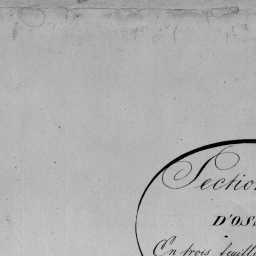 Section
D'OS
En trois feuill